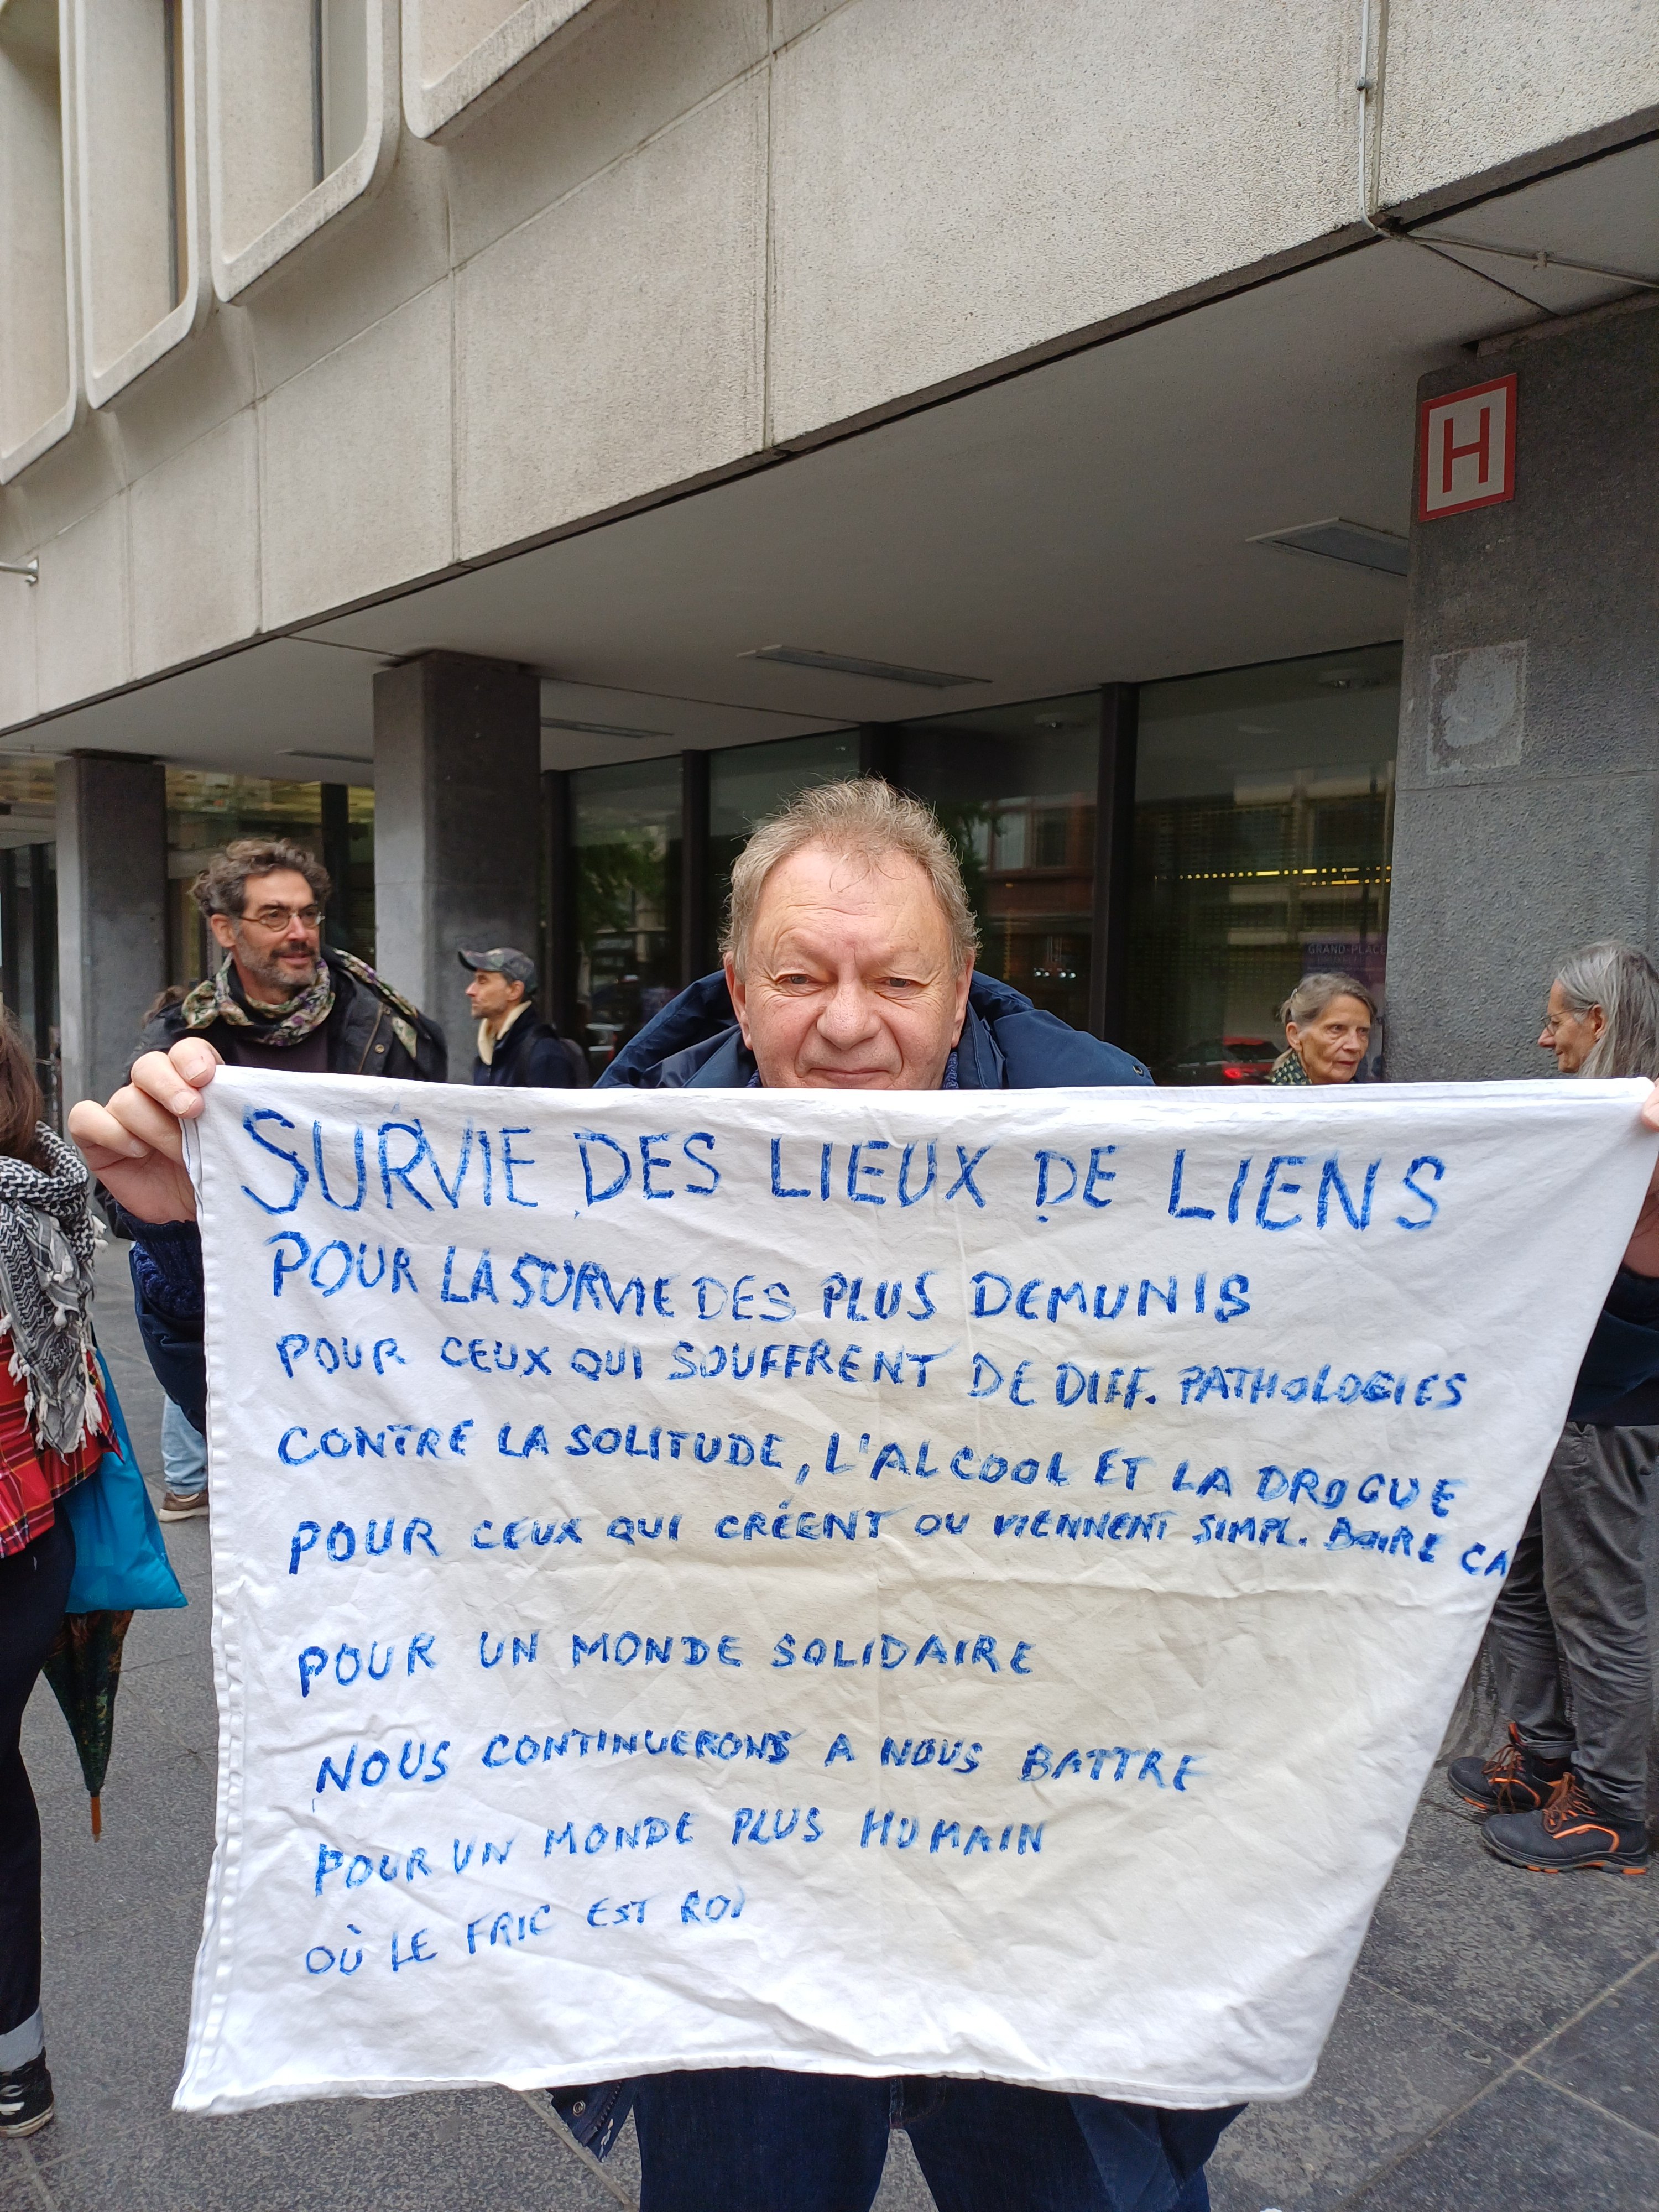 H
GRAND-PLACE
SURVIE DES LIEUX DE LIENS
POUR LA SURVIE DES PLUS DEMUNIS
POUR CEUX QUI SOUFFRENT DE DIFF. PATHOLOGIES
CONTRE LA SOLITUDE, L'ALCOOL ET LA DROGUE
POUR CEUX QUI CRÉENT OU VIENNENT SIMPL. BOIRE CA
POUR UN MONDE SOLIDAIRE
NOUS CONTINUERONS A NOUS BATTRE
POUR UN MONDE PLUS HUMAIN
OÙ LE FRIC EST ROI